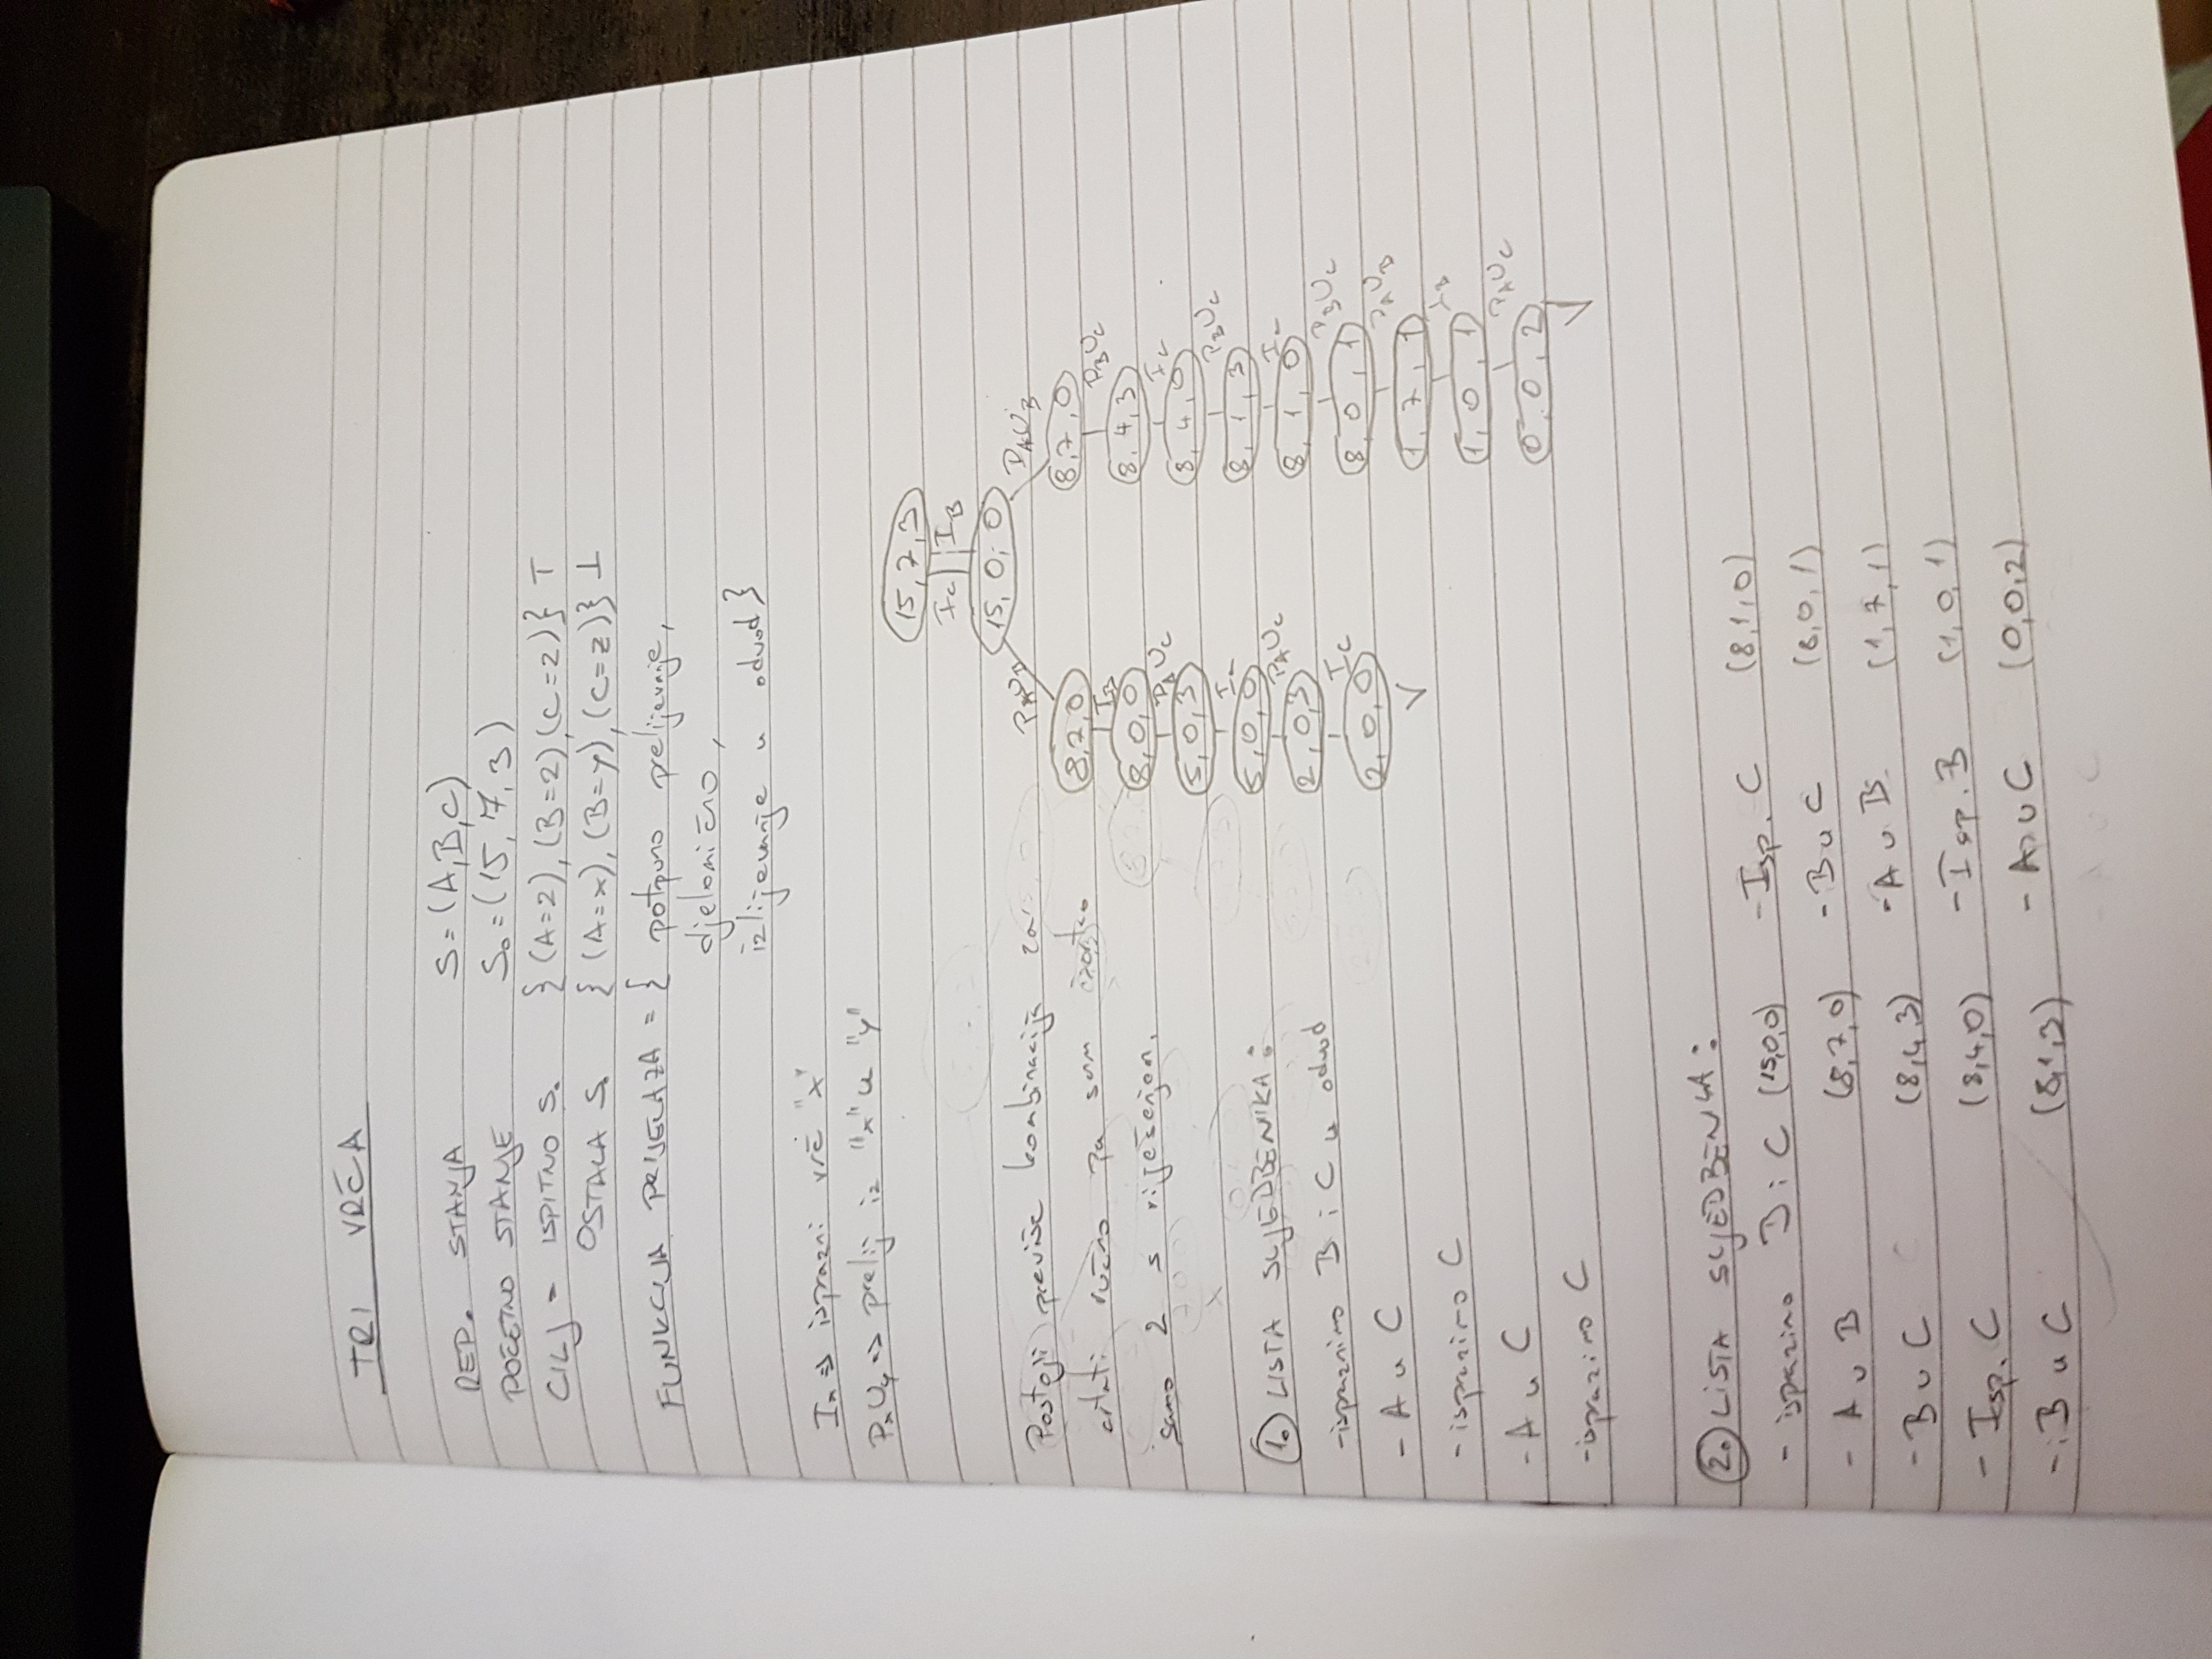 TRI VRČA
REP. STANJA S=(A,B,C)
POČETNO STANJE S₀=(15,7,3)
CILJ - ISPITNO S. {(A=2),(B=2)(C=2)} T
OSTALA S. {(A=x),(B=y),(C=z)} ⊥
FUNKCIJA PRIJELAZA = { potpuno prelijevanje,
djelomično,
izlijevanje u odvod}
Iₓ => isprazni vrč "x"
PₓUᵧ => prelij iz "x" u "y"
15,7,3
I_C I_B
15,0,0
Postoji previše kombinacija za
crtati ručno pa sam
samo 2 s riješenjem.
P_AU_B
8,7,0
I_B
8,0,0
P_AU_C
5,0,3
I_C
5,0,0
P_AU_C
2,0,3
I_C
2,0,0
P_AU_B
8,7,0
P_BU_C
8,4,3
I_C
8,4,0
P_BU_C
8,1,3
I_C
8,1,0
P_BU_C
8,0,1
P_AU_B
1,7,1
I_B
1,0,1
P_AU_C
0,0,2
1. LISTA SLJEDBENIKA:
-ispraznimo B i C u odvod
- A u C
-ispraznimo C
- A u C
-ispraznimo C
2. LISTA SLJEDBENIKA:
- ispraznimo B i C (15,0,0) - Isp. C (8,1,0)
- A u B (8,7,0) - B u C (8,0,1)
- B u C (8,4,3) - A u B (1,7,1)
- Isp. C (8,4,0) - Isp. B (1,0,1)
- B u C (8,1,3) - A u C (0,0,2)